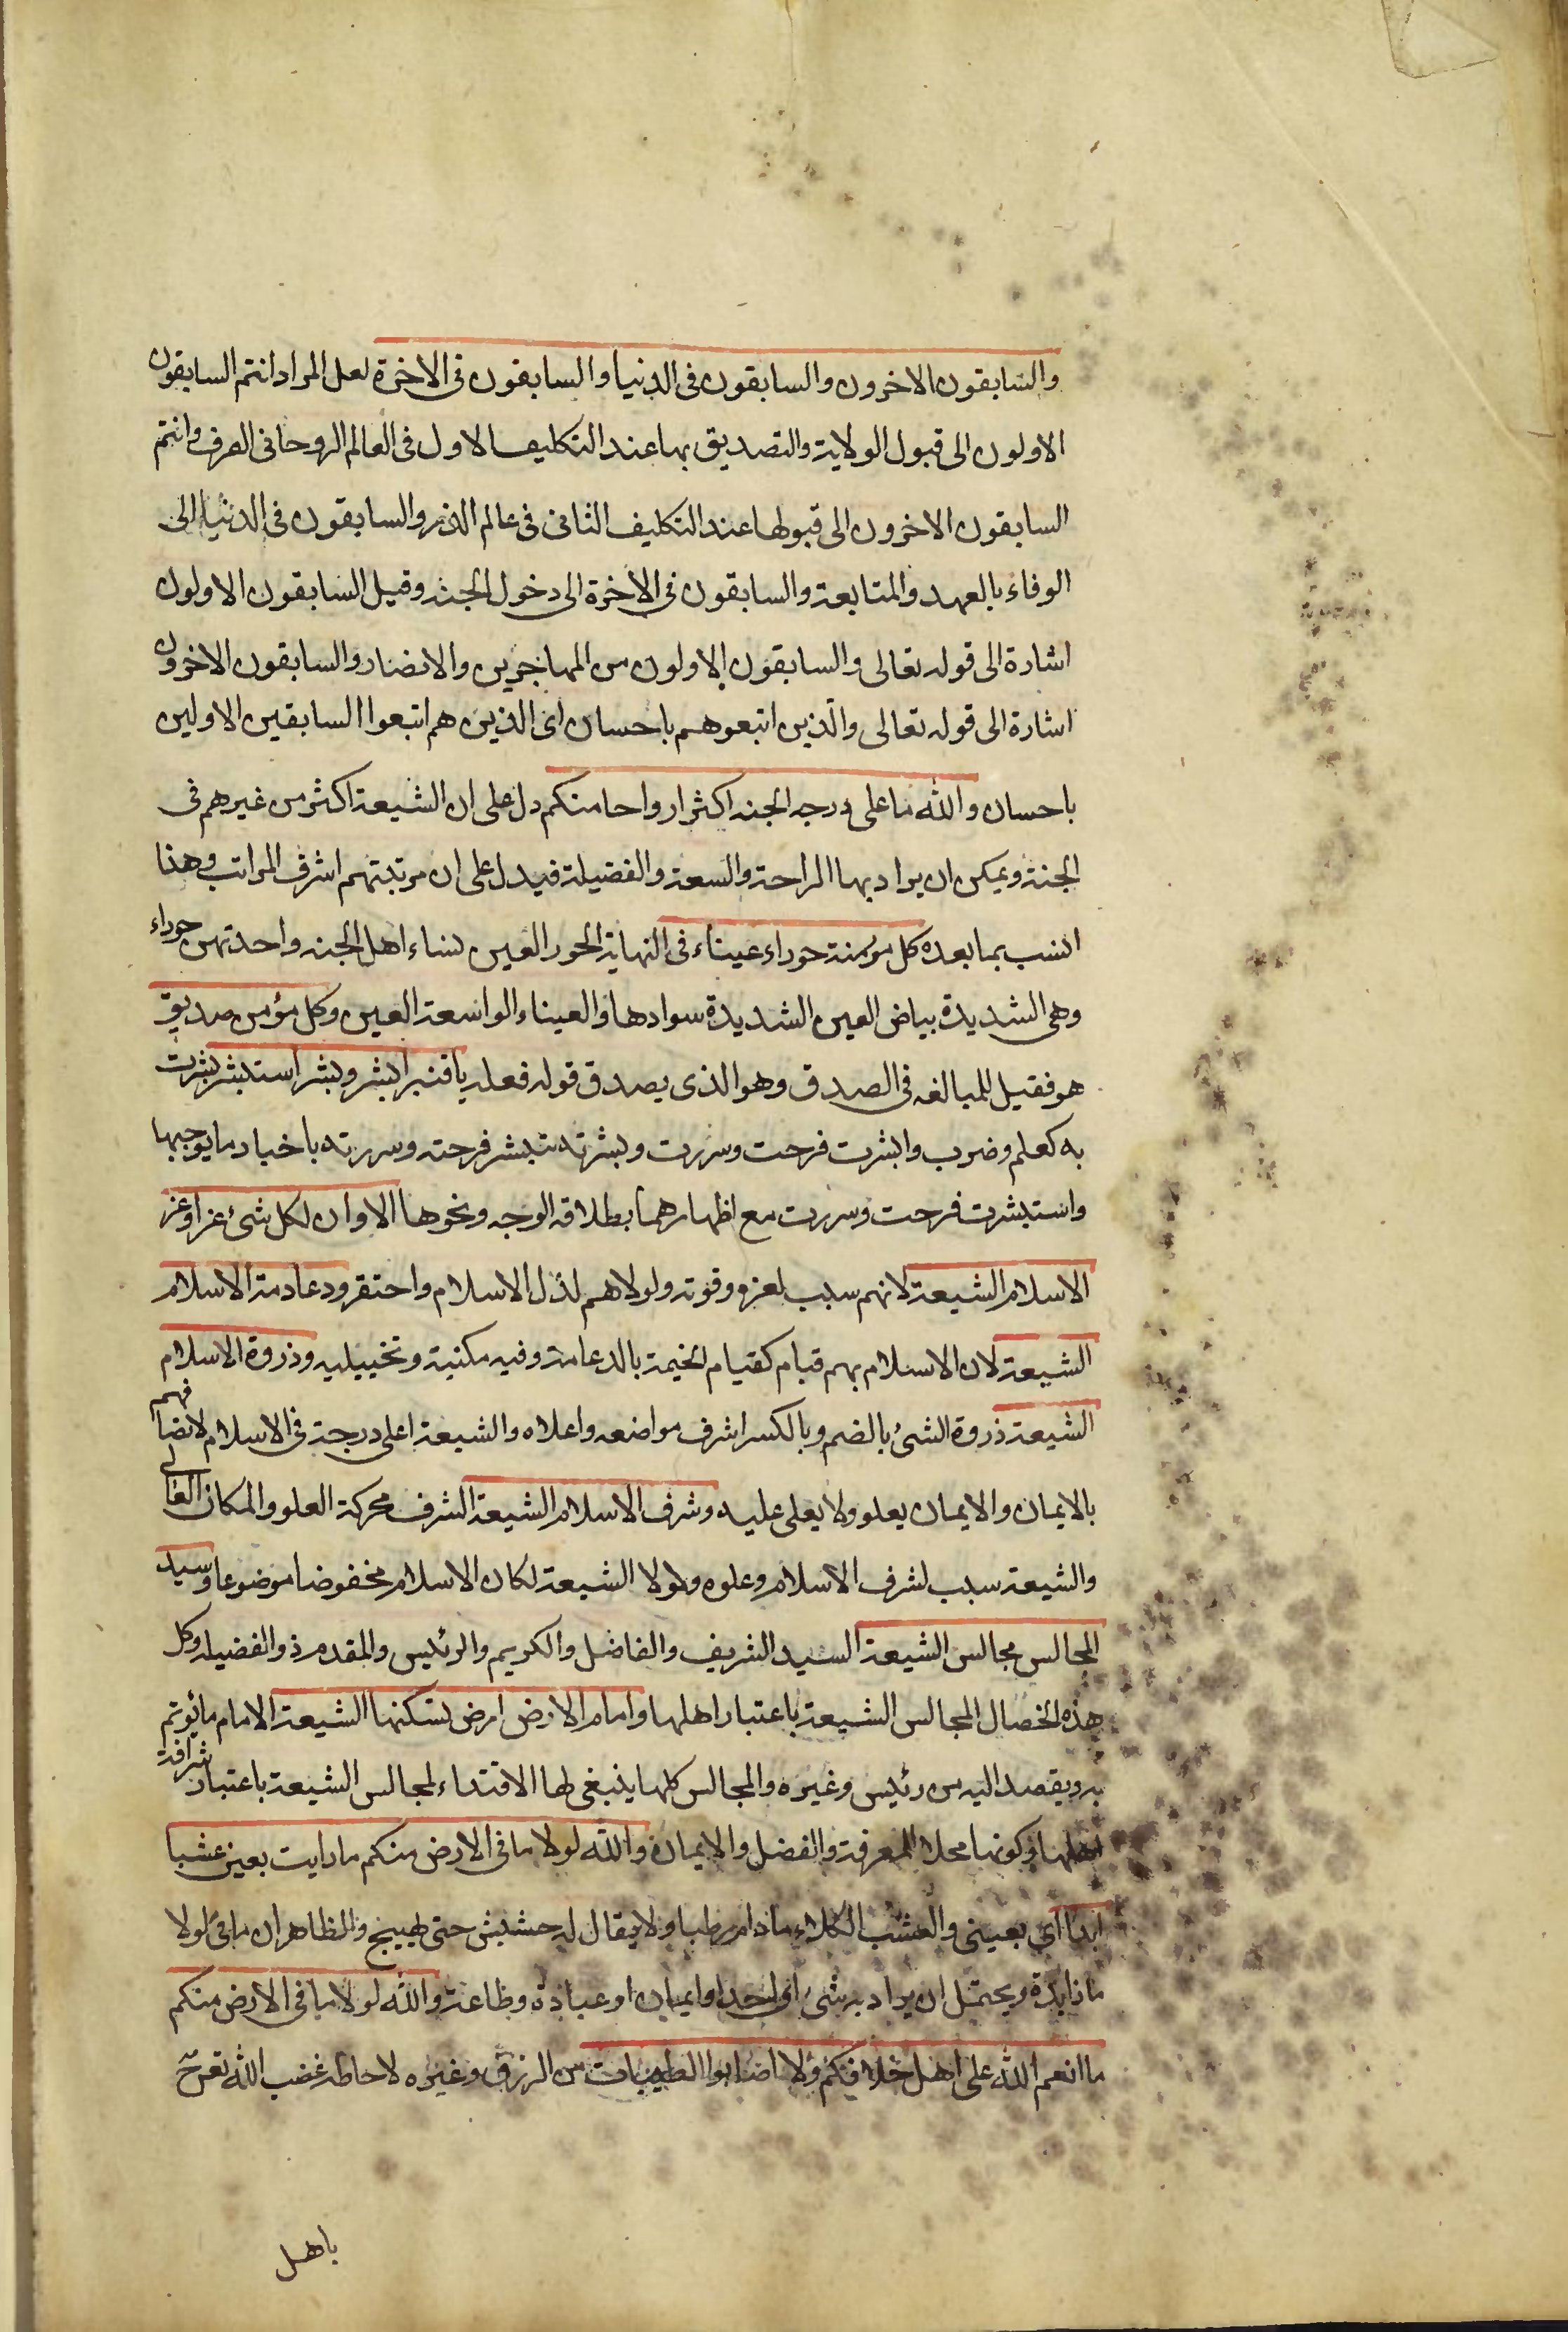 والسابقون الاخرون والسابقون فى الدنيا والسابقون فى الاخرة لعل المراد انتم السابقون
الاولون الى قبول الولاية والتصديق بها عند التكليف الاول فى العالم الروحانى الصرف وانتم
السابقون الاخرون الى قبولها عند التكليف الثانى فى عالم الذر والسابقون فى الدنيا الى
الوفاء بالعهد والمتابعة والسابقون فى الاخرة الى دخول الجنة وقيل السابقون الاولون
اشارة الى قوله تعالى والسابقون الاولون من المهاجرين والانصار والسابقون الاخرون
اشارة الى قوله تعالى والذين اتبعوهم باحسان اى الذين هم اتبعوا السابقين الاولين
باحسان والله ما على درجه الجنه اكثر ارواحا منكم دل على ان الشيعة اكثر من غيرهم فى
الجنة ويمكن ان يراد بها الراحة والسعة والفضيلة فيدل على ان مرتبتهم اشرف المراتب وهذا
انسب بما بعده كل مؤمنة حوراء عيناء فى النهاية الحور العين نساء اهل الجنه واحدتهن حوراء
وهى الشديدة بياض العين الشديدة سوادها والعيناء الواسعة العين وكل مؤمن صديق
هو فعيل للمبالغه فى الصدق وهو الذى يصدق قوله فعله يا قنبر ابشر وبشر استبشر بشرت
به كعلم وضرب وابشرت فرحت وسررت وبشرته تبشر فرحته وسررته باخبار ما يوجبها
واستبشرت فرحت وسررت مع اظهارهما بطلاقه الوجه ونحوها الا وان لكل شئ عزا وعز
الاسلام الشيعة لانهم سبب لعزه وقوته ولولاهم لذل الاسلام واحتقر ودعامة الاسلام
الشيعة لان الاسلام بهم قيام كقيام الخيمة بالدعامة وفيه مكنية وتخييليه وذروة الاسلام
الشيعة ذروة الشئ بالضم وبالكسر اشرف مواضعه واعلاه والشيعة اعلى درجة فى الاسلام لاتصافهم
بالايمان والايمان يعلو ولا يعلى عليه وشرف الاسلام الشيعة الشرف محركة العلو والمكان العالى
والشيعة سبب لشرف الاسلام وعلوه ولولا الشيعة لكان الاسلام مخفوضا موضوعا وسيد
المجالس مجالس الشيعة السيد الشريف والفاضل والكريم والرئيس والمقدم ذو الفضيله وكل
هذه الخصال المجالس الشيعة باعتبار اهلها وامام الارض ارض تسكنها الشيعة الامام ما يؤتم
به ويقصد اليه من رئيس وغيره والمجالس كلها ينبغى لها الاقتداء لمجالس الشيعة باعتبار شرافة
اهلها وكونها محلا للمعرفة والفضل والايمان والله لولا ما فى الارض منكم ما رايت بعين عشبا
ابدا اي بعينى والعشب الكلاء ما دام رطبا ولا يقال له حشيش حتى يهيج والظاهر ان ما فى لولا
ما زايدة ويحتمل ان يراد به شئ اى احد او ايمان او عبادة وطاعة والله لولا ما فى الارض منكم
ما انعم الله على اهل خلافكم ولا اصابوا الطيبات من الرزق وغيره لاحاطه غضب الله تع
باهل